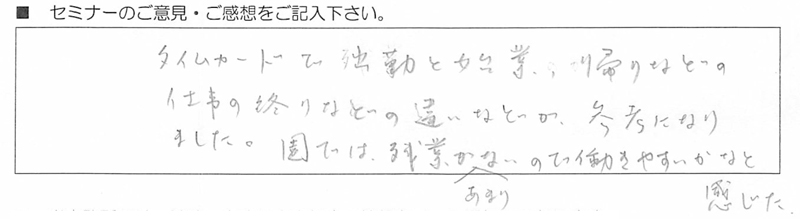 ■ セミナーのご意見・ご感想をご記入下さい。
タイムカードで出勤と始業、帰りなどの
仕事の終りなどの違いなどが、参考になり
ました。園では、残業がないので働きやすいかなと
あまり
感じた